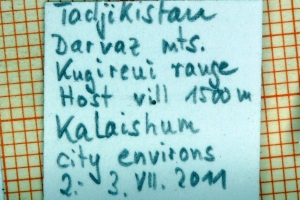 Tadjikistan
Darvaz mts.
Kugireui range
Host vill 1500m
Kalaishum
city environs
2. 3. VII. 2011